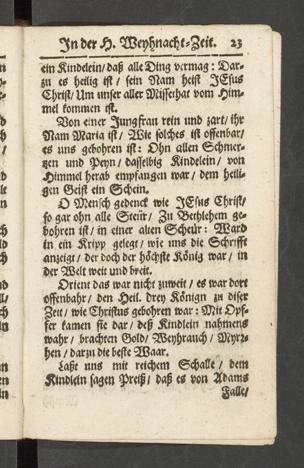 In der H. Weyhnacht-Zeit. 23
ein Kindelein/ daß alle Ding vermag: Dar-
zu es heilig ist/ sein Nam heist JEsus
Christ/ Um unser aller Missethat vom Him-
mel kommen ist.
Von einer Jungfrau rein und zart/ ihr
Nam Maria ist/ Wie solches ist offenbar/
es uns gebohren ist: Ohn allen Schmer-
tzen und Peyn/ dasselbig Kindelein/ von
Himmel herab empfangen war/ dem heili-
gen Geist ein Schein.
O Mensch gedenck wie JEsus Christ/
so gar ohn alle Steur/ Zu Bethlehem ge-
bohren ist/ in einer alten Scheur: Ward
in ein Kripp gelegt/ wie uns die Schrifft
anzeigt/ der doch der höchste König war/ in
der Welt weit und breit.
Orient das war nicht zuweit/ es war dort
offenbahr/ den Heil. drey Könign zu diser
Zeit/ wie Christus gebohren war: Mit Opf-
fer kamen sie dar/ deß Kindlein nahmens
wahr/ brachten Gold/ Weyhrauch/ Myrr-
hen/ darzu die beste Waar.
Laßt uns mit reichem Schalle/ dem
Kindlein sagen Preiß/ daß es von Adams
Falle/